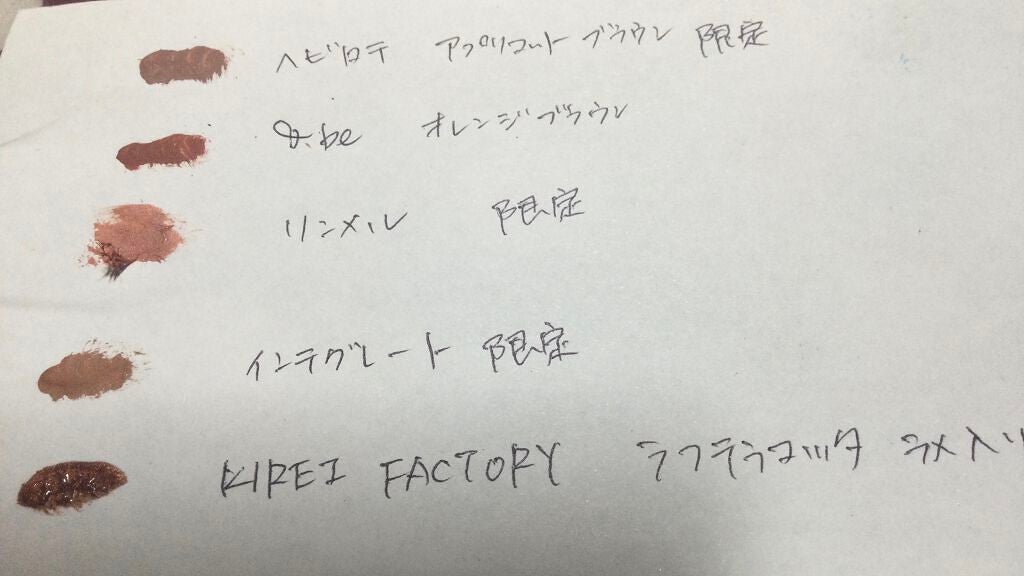 ヘビロテ アプリコットブラウン 限定
d.be オレンジブラウン
リンメル 限定
インテグレート 限定
KIREI FACTORY ラフテラコッタ ラメ入り